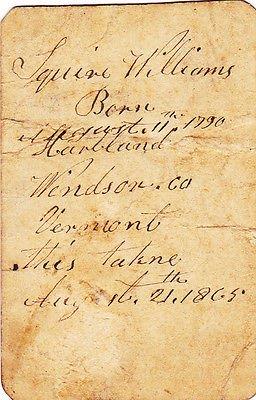 Squire Williams
Born
August. 11th 1790
Hartland
Windsor. co
Vermont
this takne
August. 21th. 1865